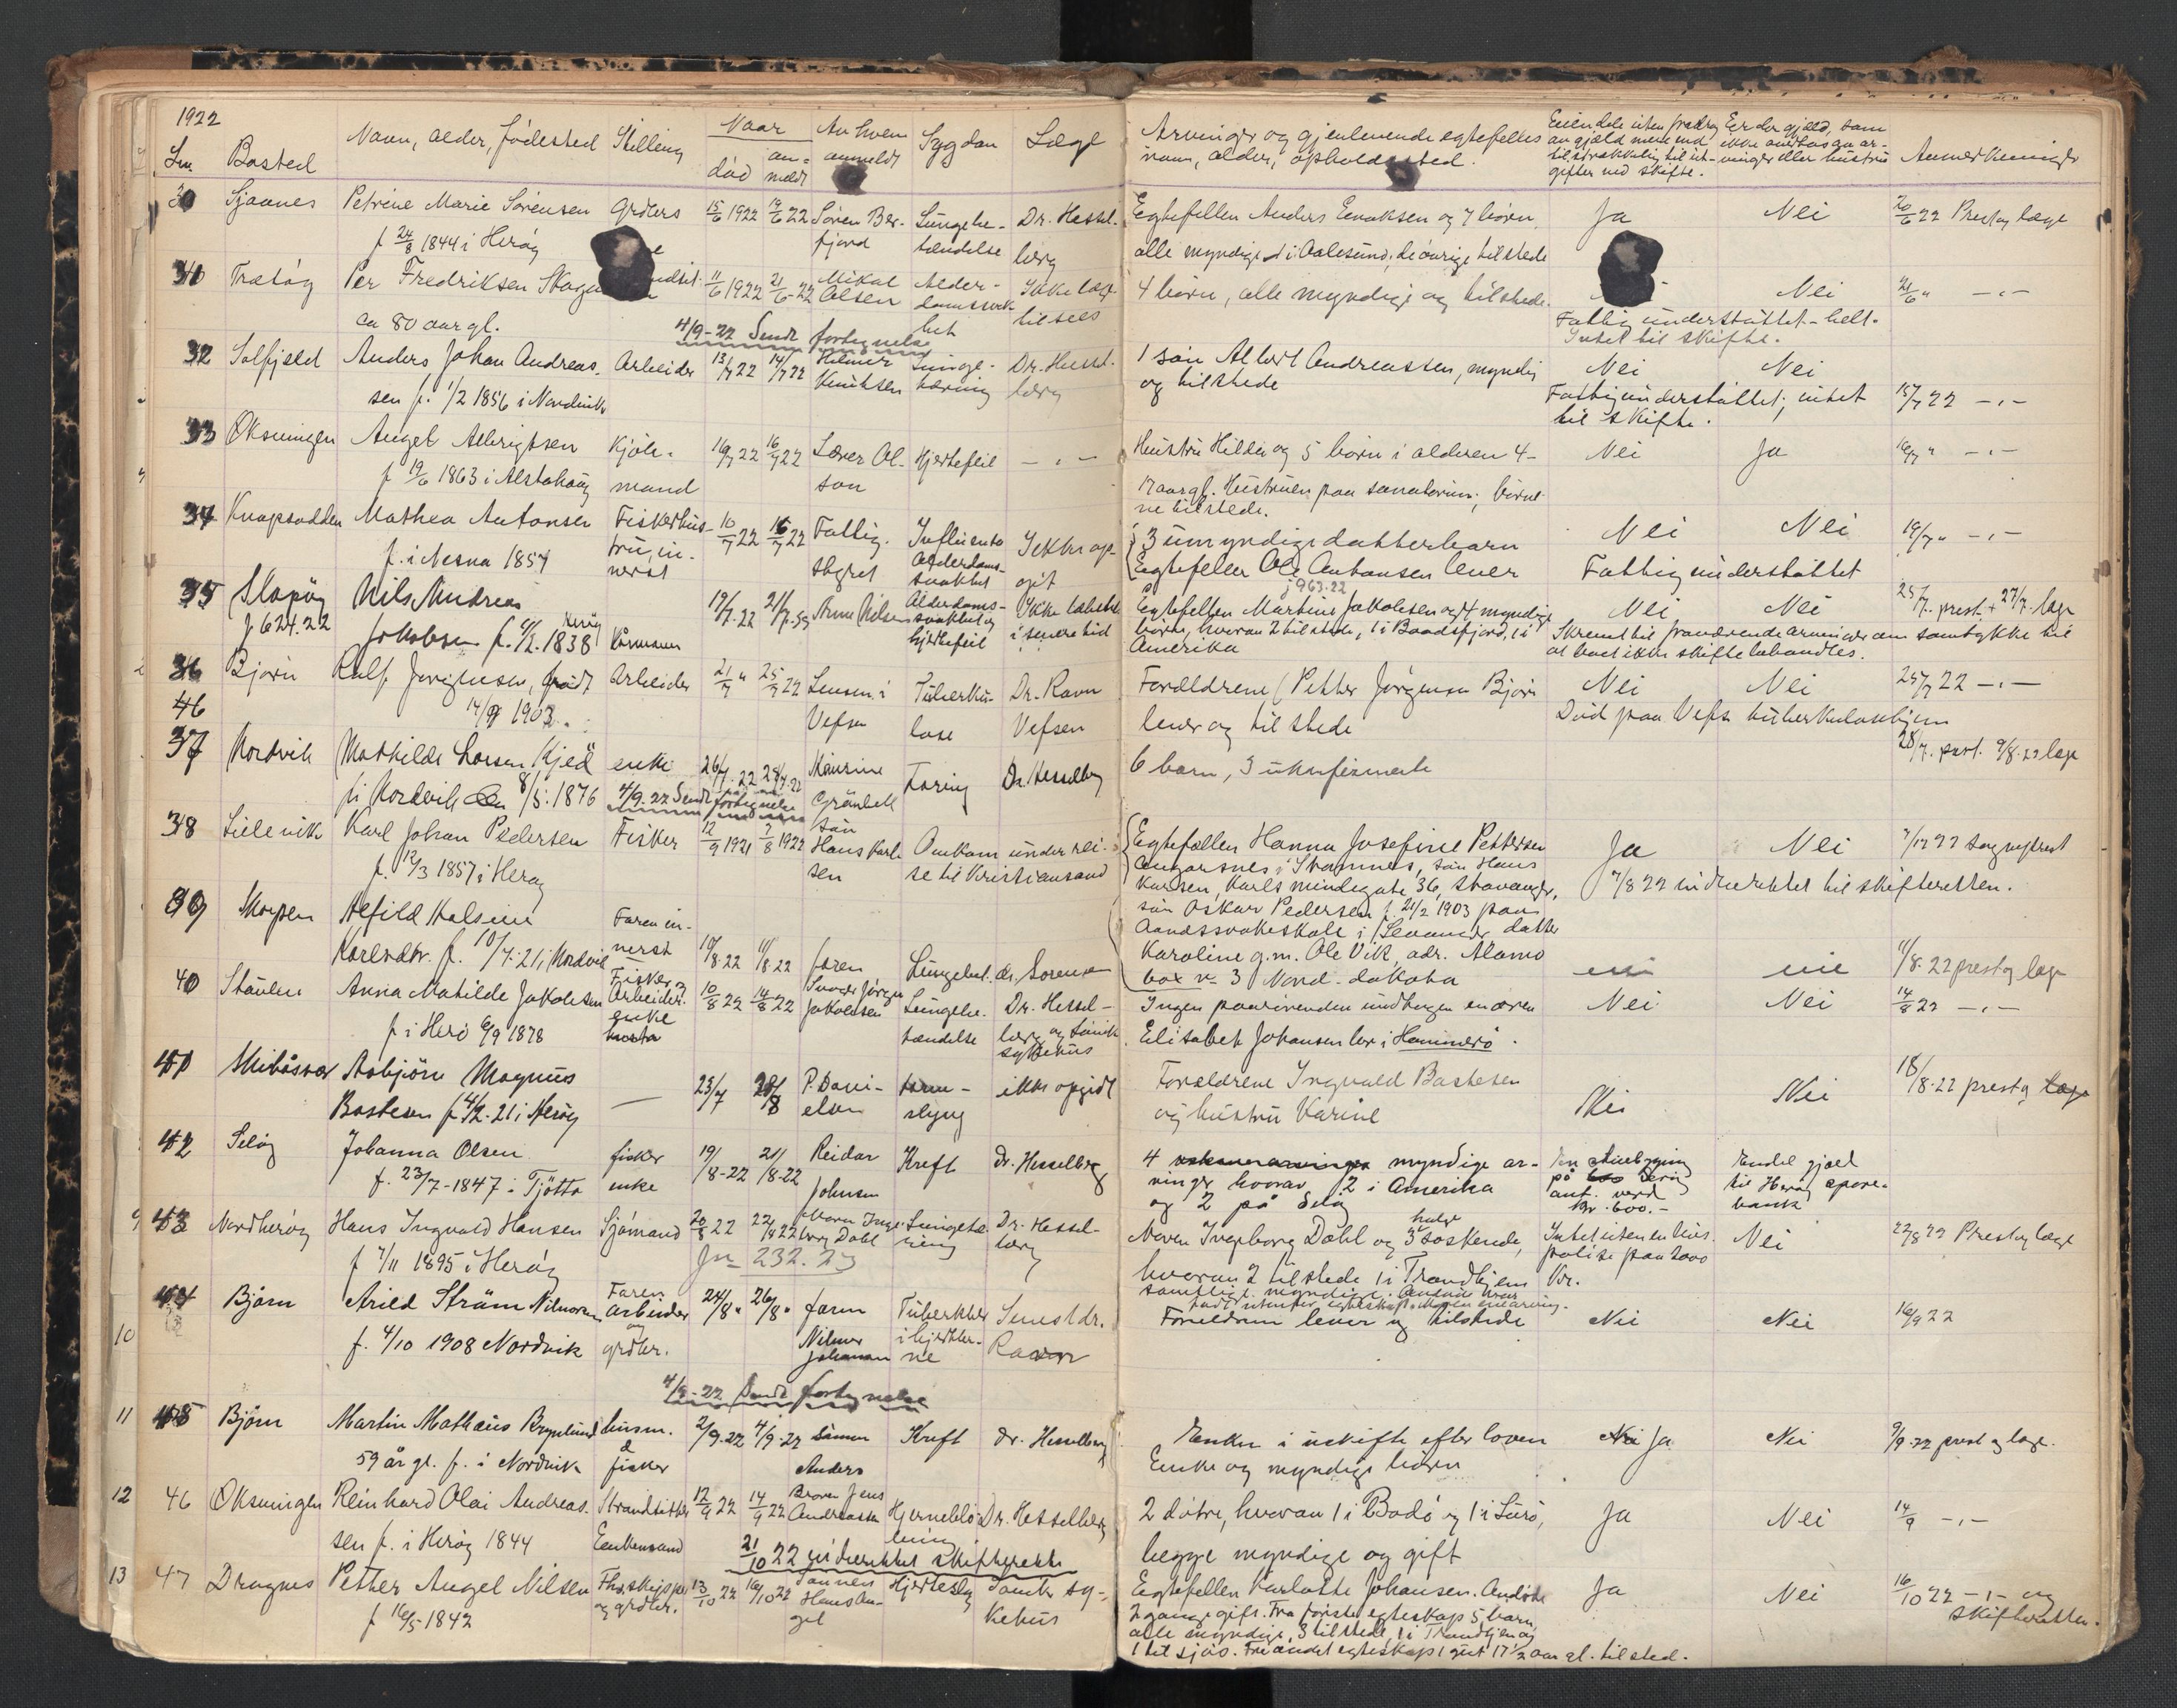 1922
Lnr. Bosted Navn, alder, fødested Stilling Naar død anmeldt Av hvem anmeldt Sygdom Læge Arvinger og gjenlevende egtefelles navn, alder, opholdssted. Eiendele uten fradrag av gjæld mere end tilstrækkelig til utgifter ved skifte. Er der gjæld, som ikke overtas av arvinger eller hustru Anmerkninger
30 Sjaanes Petrine Marie Sørensen Grdbrs 15/6 1922 19/6 22 Søren Ber- Lungebe- Dr. Hessel- Egtefellen Anders Enoksen og 7 børn, Ja Nei 20/6 22 Prest og læge
f 24/8 1844 i Herøy fjord tændelse berg alle myndige 1 i Aalesund, de øvrige tilstede
31 Trætøy Per Fredriksen 11/6 1922 21/6-22 Mikal Olsen Alder- Ikke læge- 4 børn, alle myndige og tilstede. Nei 21/6 " -"-
ca 80 aar gl. domssvakhet tilsees Fattigunderstøttet - helt.
4/9-22 Sendt fortegnelse Intet til skifte.
32 Solfjeld Anders Johan Andreas- Arbeider 13/7 22 14/7 22 Hilmer Lunge- Dr. Hessel- 1 søn Albert Andreassen, myndig Nei Nei
sen f. 1/2 1856 i Nordvik Henriksen tæring berg og tilstede Fattigunderstøttet, intet 15/7 22 -"-
til skifte.
33 Øksningen Angel Albrigtsen Kjøb- 16/7 22 16/7 22 Lærer Ol- Hjertefeil -"- Hustru Hilda og 5 børn i alderen 4- Nei Ja 16/7 " -"-
f 19/6 1863 i Alstahaug mand son 17 aar gl. Hustruen paa sanatorium, børne-
ne tilstede.
34 Knapsodden Mathea Antonsen Fiskerhus- 10/7 22 16/7 22 Fattig- Influensa Ikke op- 3 umyndige datterbarn Nei Nei 19/7 " -"-
f. i Nesna 1854 tru, in- styret Alderdoms- git Egtefellen Ole Antonsen lever Fattigunderstøttet
nerst svakhet j 963.22
35 Slapøy Nils Andreas 19/7.22 21/7.22 Arne Nilsen Alderdoms- Ikke Egtefellen Martine Jakobsen og 4 myndige Nei Nei 25/7. prest + 27/7. læge
j 624.22 Jakobsen f. 4/2. 1838 Kårmann svakhet og hjertefeil i senere tid børn, hvorav 2 tilstede, 1 i Baadsfjord, 1 i Skrevet til fraværende arvinger om samtykke til
Amerika at boet ikke skiftebehandles.
36 Bjørn Rolf Jørgensen, født Arbeider 21/7 " 25/7 22 Lensm. i Tuberku- Dr. Ravn Forældrene (Petter Jørgensen Bjørn Nei Nei 25/7 22 -"-
46 14/9 1903. Vefsn lose Vefsen lever og tilstede Død paa Vefsn tuberkulosehjem
37 Nordvik Mathilde Larsen Kjeø enke 26/7.22 28/7.22 Maurine Tæring Dr. Hesselberg 6 barn, 3 ukonfirmerte 28/7. prest. 9/8.22 læge
f. i Nordvik den 8/5. 1876 4/9.22 Sendt fortegnelse Grønbek
38 Leilevik Karl Johan Pedersen Fisker 12/9 1921 7/8 1922 Søn Hans Karl- Omkom under rei- Egtefellen Hanna Josefine Pettersen Ja Nei 7/8 22 sogneprest
f. 12/3 1857 i Herøy sen se til Kristiansand i Stamnes, søn Hans
Karlsen, Karls mindegate 36, Stavanger, 7/8 22 indberettet til skifteretten.
39 Skorpen Alfild Halsine Faren in- søn Oskar Pedersen f. 21/2 1903 paa
Karlsdtr. f. 10/4.21 i Nordvik nerst 10/8.22 11/8.22 faren Lungebet. dr. Sørensen Aandssvakeskole i Levanger datter
Karoline g.m. Ole Vik, adr. Alamo nei nei 11/8.22 prest og læge
box nr 3 Nord-dakota
40 Staulen Anna Matilde Jakobsen Fisker og Arbeider- enke 10/8 22 14/8 22 Jørgen Jakobsen Lungebe- Dr. Hessel- Ingen paarørende undtagen en søster Nei Nei 14/8 22 -"-
f. i Herø 6/9 1878 tændelse berg og Sandn. sykehus Elisabet Johansen bor i Hammerø.
41 Skibåsvær Asbjørn Magnus — 23/7 P. Dani- ikke opgidt Forældrene Ingvald Bastesen Nei Nei 18/8.22 prest og læge
Bastesen f 4/2.21 i Herøy elsen slyng og hustru Karine
42 Seløy Johanna Olsen fisker 19/8-22 21/8-22 Reidar Kreft dr. Hesselberg 4 myndige ar- En Endel gjæld
f. 23/7-1847 i Tjøtta enke Johnsen vinger hvorav 2 i Amerika på til Herøy spare-
og 2 på Seløy ant. verd kr. 600.- bank
43 Nordherøy Hans Ingvald Hansen Sjømand 20/8 22 22/8 22 Moren Inge- Lungetæ- Dr. Hessel- Moren Ingeborg Dahl og 3 halvsøskende, Intet uten en livs- Nei 22/8 22 Prest og læge
f 7/11 1895 i Herøy Jnr 232.23 borg Dahl ring berg hvorav 2 tilstede 1 i Trondhjem polise paa 2000 Kr.
samtlige myndige. Avdøde var
født utenfor egteskap. Moren enearving.
44 Bjørn Arild Strøm Nilmoran Faren arbeider og 24/8 " 26/8 " faren Tuberkler Senest dr. Forældrene lever og tilstede Nei Nei 16/9 22
10 f. 4/10 1908 Nordvik grdbr. Nilmor Johansen i hjertehin- ne Ravn
4/9-22 Sendt fortegnelse
11 45 Bjørn Martin Mathæus Brynlund husm. & 2/9.22 4/9.22 Sønnen Kreft dr. Hesselberg Enken i uskifte efter loven Nei Ja Nei 9/9.22 prest og læge.
59 år gl. f. i Nordvik fisker Anders Enke og myndige børn
12 46 Øksningen Reinhard Olai Andreas- Strandsitter 12/9 22 14/9 22 Broren Jens Andreassen Hjerneblø- Dr. Hesselberg 2 døtre, hvorav 1 i Bodø og 1 i Lurø, Ja Nei 14/9 -"-
sen f. i Herøy 1844 Enkemand ning begge myndige og gift
21/10 22 indberettet skifterette
13 47 Dragnes Petter Angel Nilsen og grdbr. 13/10 22 16/10 22 Sønnen Hans An- gel Hjerteslag sy- kehus Egtefellen Karlotte Johansen. Avdøde Ja Nei 16/10 22 -"- og
f 16/5-1842 2 gange gift. Fra første egteskap 5 barn, skifteretten.
alle myndige, 3 tilstede, 1 i Trondhjem og
1 til sjøs. Fra andet egteskap 1 gut 17 1/2 aar gl. tilsted.